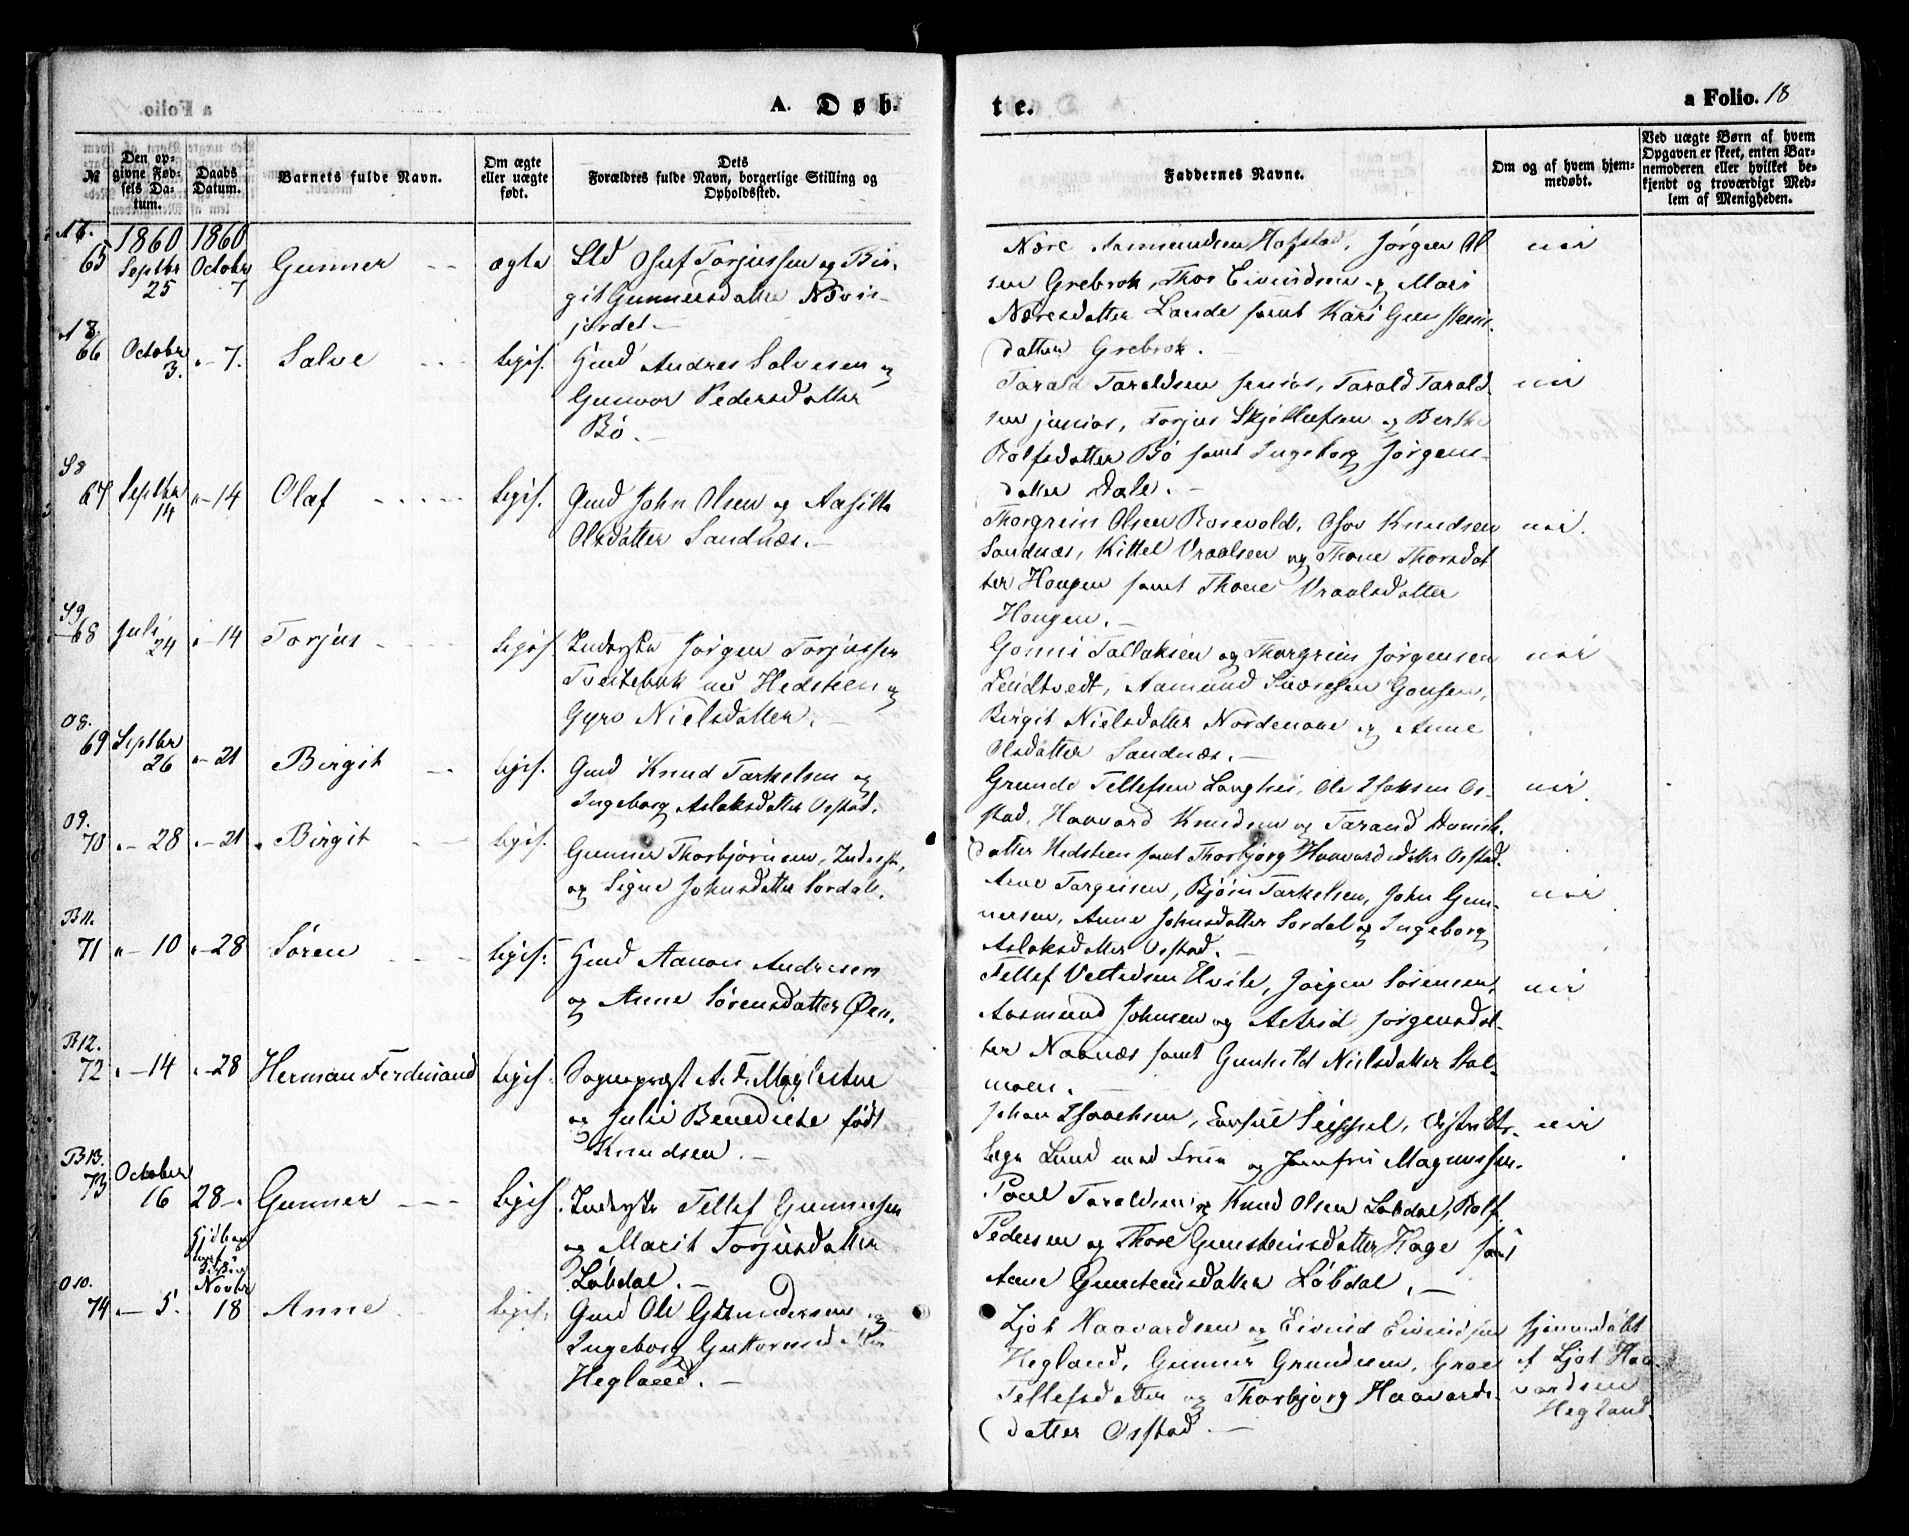 A. Døb-
te.
a Folio. 18
№
Den op-
givne Fød-
sels Da-
tum.
Daabs
Datum.
Barnets fulde Navn.
Om ægte
eller uægte
født.
Dets
Forældres fulde Navn, borgerlige Stilling og
Opholdssted.
Faddernes Navne.
Om og af hvem hjem-
medøbt.
Ved uægte Børn af hvem
Opgaven er skeet, enten Bar-
nemoderen eller hvilket be-
kjendt og troværdigt Med-
lem af Menigheden.
65
1860
Septbr
25
1860
Octobr
7
Gunner
ægte
Sld Oluf Torjussen og Bir-
git Gunnersdatter
jordet.
Nære Aamundsen Hafstad, Jørgen Ol-
sen Grebrok, Thor Eivindsen og Mari
Næresdatter Lande samt Kari Gunsteins-
datter Grebrok.
nei
A 8.
66
Octobr
3.
" 7.
Salve
ligis.
Gmd Andres Salvesen og
Gunvor Pedersdatter
Bø.
Tarald Taraldsen senior, Tarald Tarald-
sen junior, Torjus Skjellufsen og Berthe
Rolfsdatter Bø samt Ingeborg Jørgens-
datter Dale.
nei
S 8
67
Septbr
14
" 14
Olaf
ligis.
Gmd John Olsen og Aasille
Olsdatter Sandnæs.
Thorgrim Olsen Rosevold, Osov Knudsen
Sandnæs, Kittel Vraalsen og Thone Thorsdat
ter Haugen samt Thone Vraalsdatter
Haugen.
nei.
S 9
68
Juli
24
" 14
Torjus
ligis
Inderste Jørgen Torjussen
Tveitebuk nu Hedsteen og
Gyro Nielsdatter.
Gonni Tallaksen og Thorgrim Jørgensen
Lendtvedt, Aamund Gonsen,
Birgit Nielsdatter Nordenaae og Anne
Olsdatter Sandnæs.
nei
O 8.
69
Septbr
26
" 21
Birgit
ligis.
Gmd Knud Tarkelsen og
Ingeborg Aslaksdatter Ofstad.
Grunde Tellefsen Langhei, Ole Isaksen Of-
stad, Haavard Knudsen og Tarand
datter Hedsteen samt Thorbjørg Haavardsdatter Ofstad.
nei.
O 9.
70
" 28
" 21
Birgit
ligis.
Gunner Thorbjørnsen, Inderste,
og Signe Johnsdatter Sordal.
Arne Targeisen, Bjørn Tarkelsen, John Gun-
nersen, Anne Johnsdatter Sordal og Ingeborg
Aslaksdatter Ofstad.
nei
B 11.
71
" 10
" 28
Søren
ligis.
Gmd Aanon Andresen
og Anne Sørensdatter Øen.
Tellef Vettesen Hvile, Jørgen Sørensen,
Aasmund Johnsen og Astrid Jørgensdat-
ter Navnæs samt Gunhild Nielsdatter Stal-
moen.
nei
B 12.
72
" 14
" 28
Herman Ferdinand
ligis.
Sognepræst A. F. Møglestue
og Julie Benedicte født
Knudsen.
Johan Isaachsen, Consul Seippel, Distrikts-
læge Lund med Frue og Jomfru Magnussen.
nei
B 13.
73
October
16
28
Gunner
ligis.
Inderste Tellef Gunnersen
og Marit Torjusdatter
Løbdal.
Poul Taraldsen og Knud Olsen Løbdal, Rolf
Pedersen og Thore Gunsteinsdatter Hage samt
Anne Gunsteinsdatter Løbdal.
O 10.
74
" 5.
Novbr
18
Anne
ligis.
Gmd Ole Gundersen og
Ingeborg Guttormsdatter
Hegland.
Ljot Haavardsen og Eivind Eivindsen
Hegland, Gunner Grundesen, Groe
Tellefsdatter og Thorbjørg Haavards-
datter Ofstad.
hjemmedøbt
af Ljot Haa-
vardsen
Hegland.